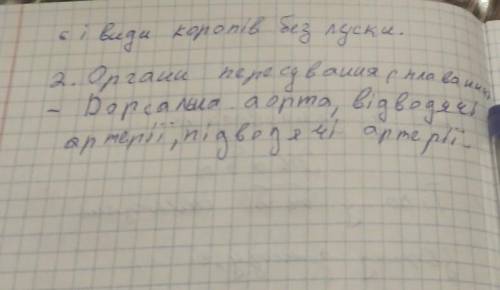 є і види коропів без луски.
2. Органи пересування (плавання)
- Дорсальна аорта, відводячі
артерії, підводячі артерії.